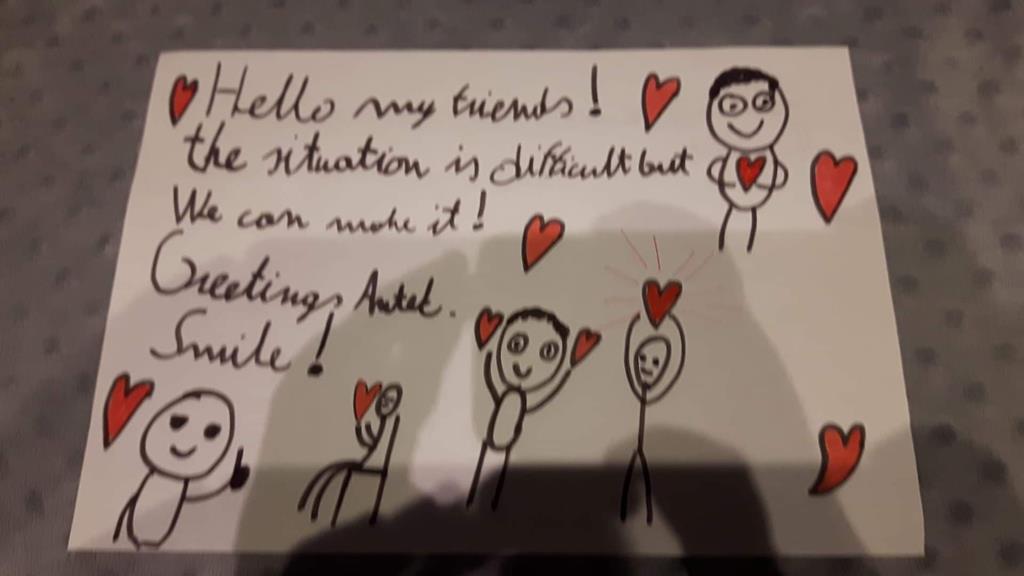 Hello my friends!
the situation is difficult but
We can make it!
Greetings
Smile!